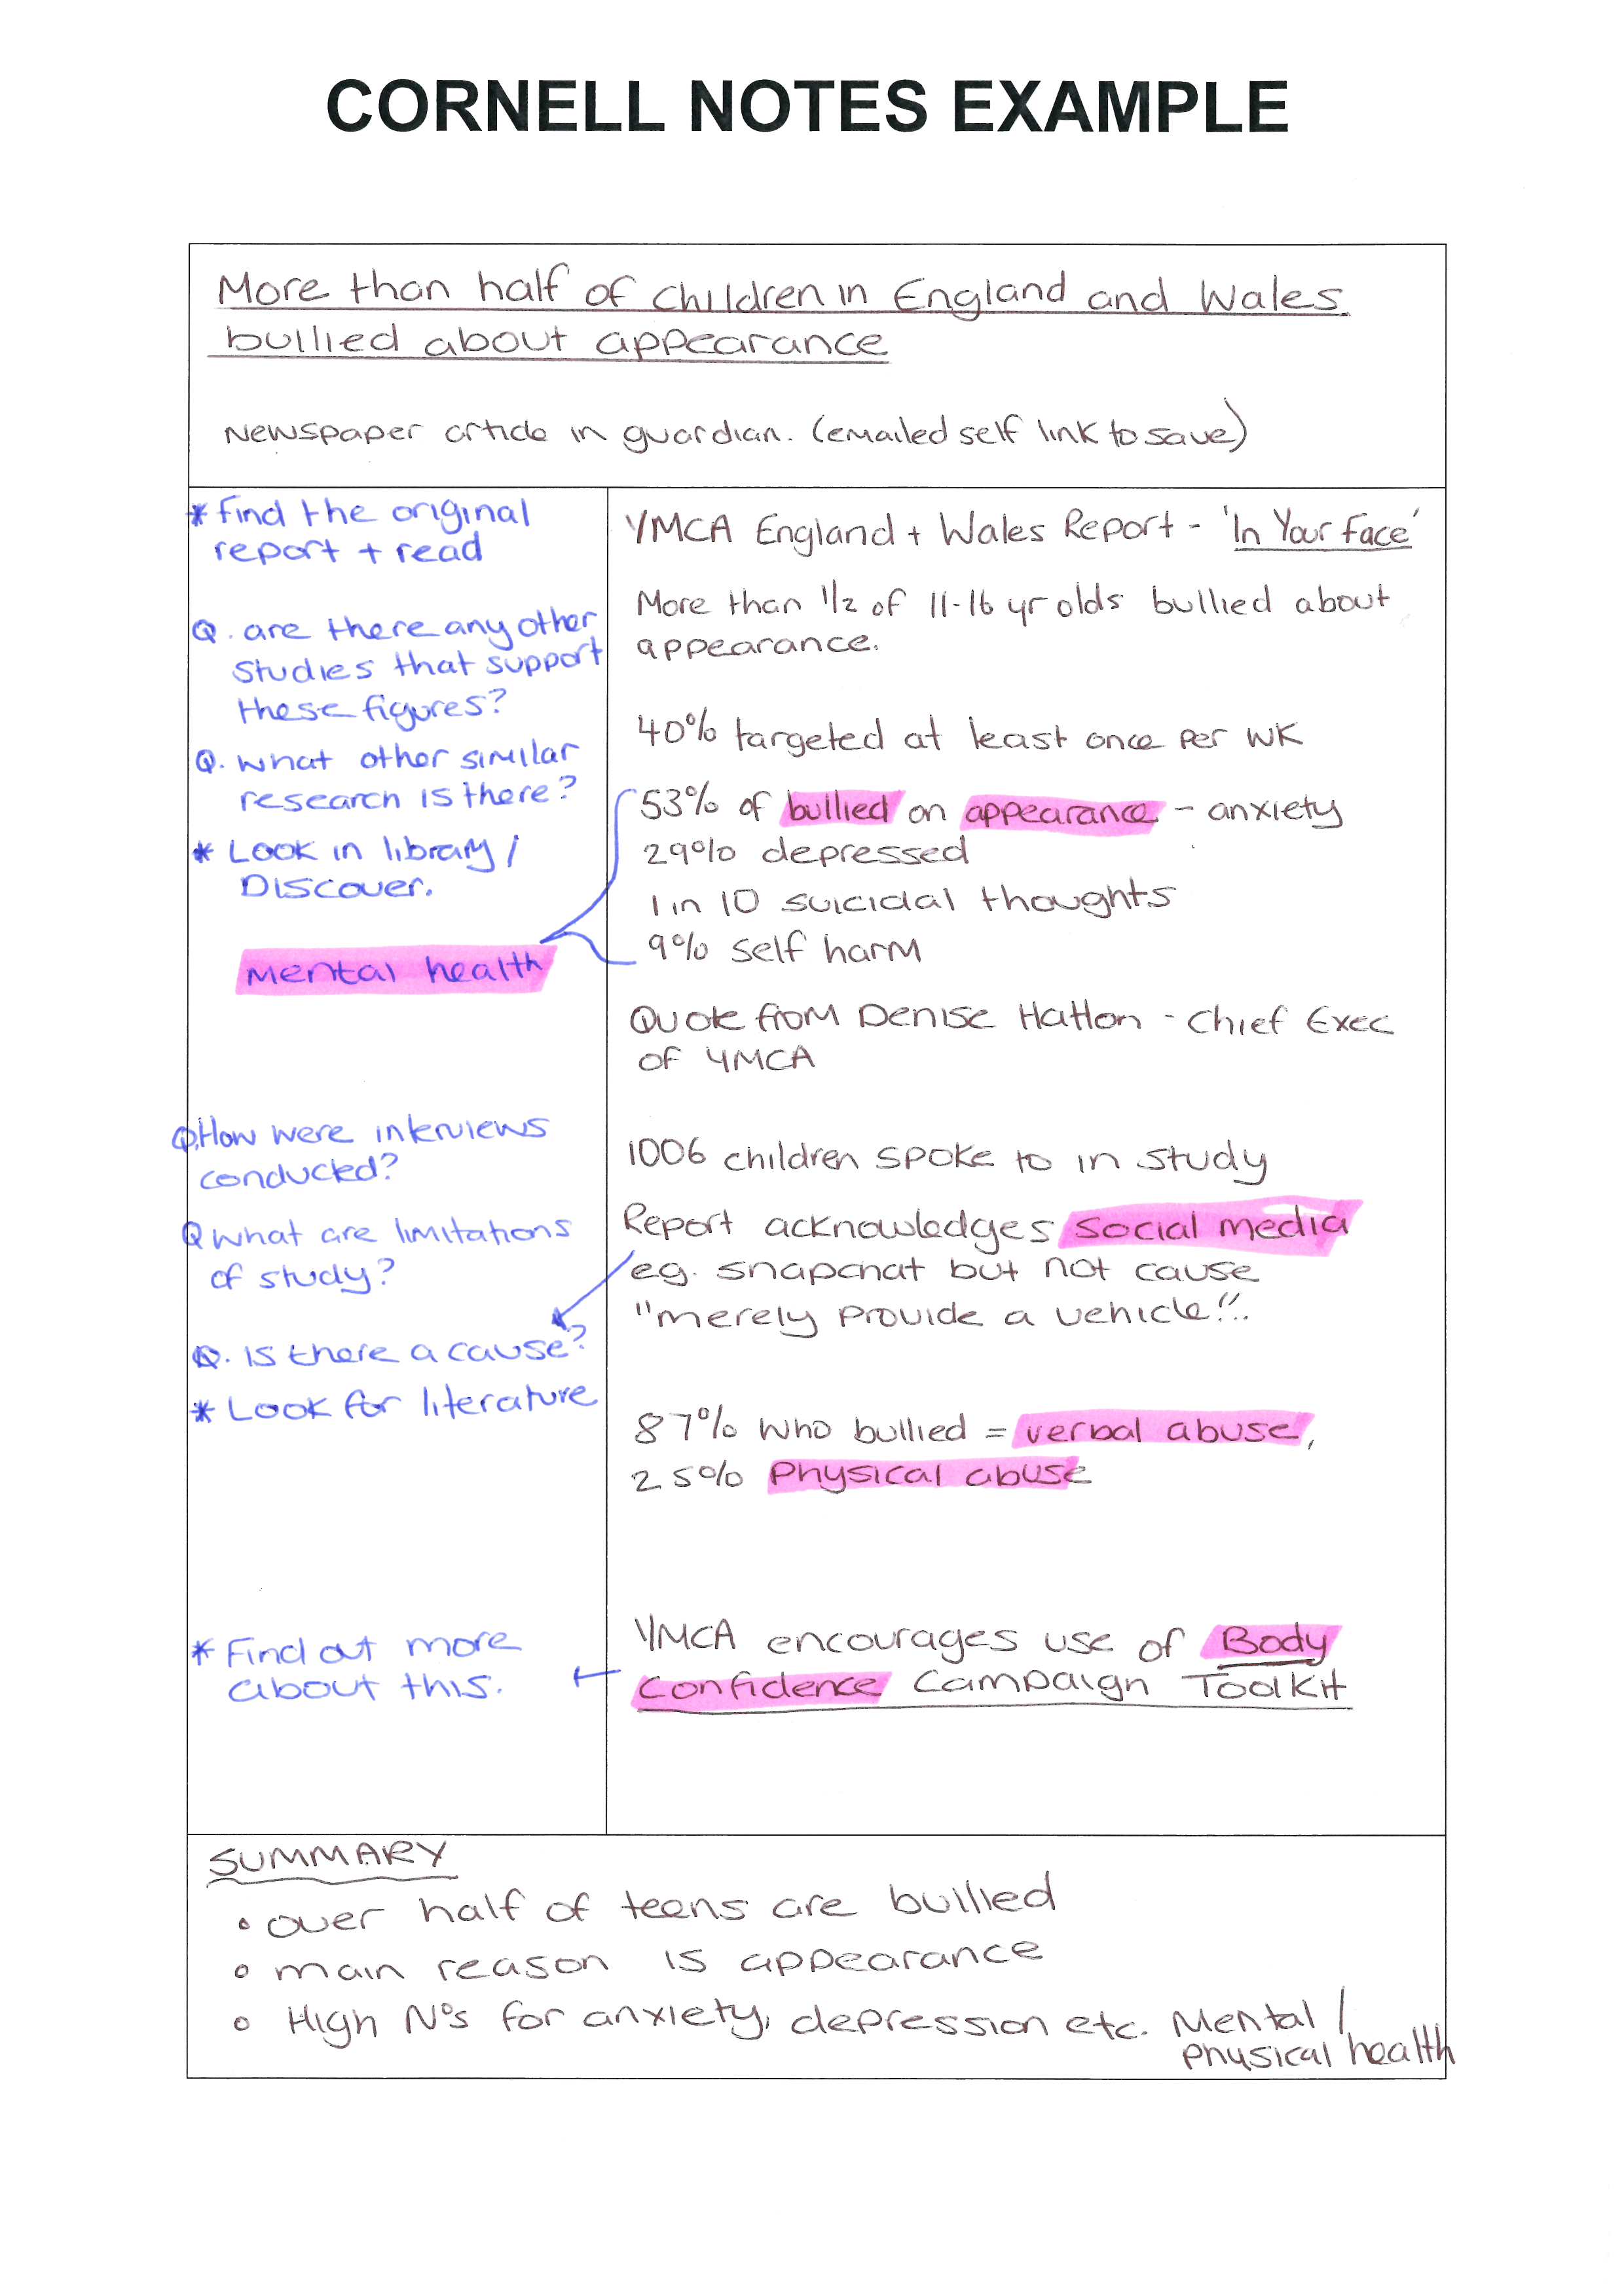 CORNELL NOTES EXAMPLE
More than half of children in England and Wales
bullied about appearance
Newspaper article in guardian. (emailed self link to save)
* Find the original
report + read
Q. are there any other
studies that support
these figures?
Q. What other similar
research is there?
* Look in library /
Discover.
Mental health
Q. How were interviews
conducted?
Q What are limitations
of study?
Q. Is there a cause?
* Look for literature
* Find out more
about this.
YMCA England + Wales Report - 'In Your Face'
More than 1/2 of 11-16 yr olds bullied about
appearance.
40% targeted at least once per wk
53% of bullied on appearance - anxiety
29% depressed
1 in 10 suicidal thoughts
9% self harm
Quote from Denise Hatton - Chief Exec
of YMCA
1006 children spoke to in study
Report acknowledges social media
eg. snapchat but not cause
"merely provide a vehicle".
87% who bullied = verbal abuse,
25% Physical abuse
YMCA encourages use of Body
Confidence Campaign Toolkit
SUMMARY
• over half of teens are bullied
• main reason is appearance
• High Nºs for anxiety, depression etc. Mental /
physical health